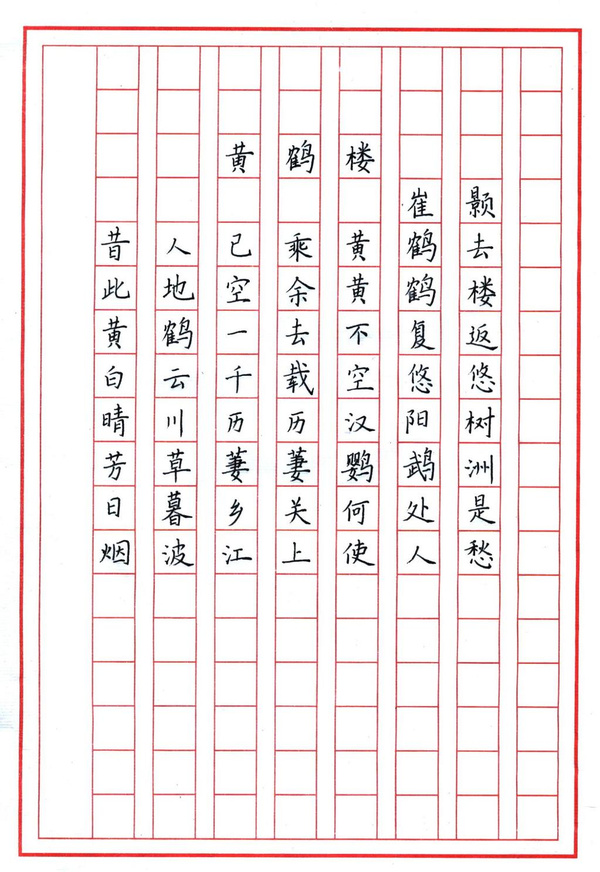 黄鹤楼
崔颢
昔人已乘黄鹤去
此地空余黄鹤楼
黄鹤一去不复返
白云千载空悠悠
晴川历历汉阳树
芳草萋萋鹦鹉洲
日暮乡关何处是
烟波江上使人愁